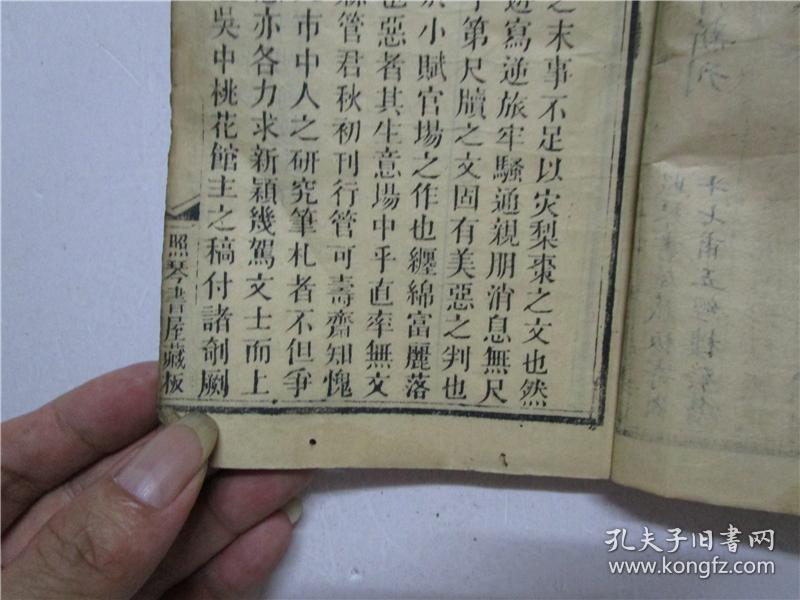 之末事不足以灾梨棗之文也然
寫逆旅牢騷通親朋消息無尺
第尺牘之文固有美惡之判也
小賦官場之作也纏綿富麗落
惡者其生意場中乎直率無文
管君秋初刊行管可壽齋知愧
市中人之研究筆札者不但爭
亦各力求新穎幾駕文士而上
吳中桃花館主之稿付諸剞劂
照琴書屋藏板
孔夫子旧书网
www.kongfz.com